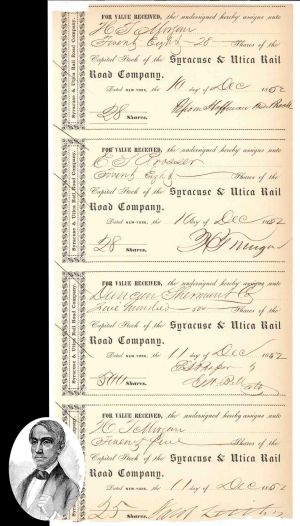 Syracuse & Utica Rail Road Company.
FOR VALUE RECEIVED, the undersigned hereby assigns unto
H T Morgan
Twenty Eight - 28 - Shares of the
Capital Stock of the Syracuse & Utica Rail
Road Company.
Dated NEW-YORK, the 10 day of Dec 1852
28 Shares.
Syracuse & Utica Rail Road Company.
FOR VALUE RECEIVED, the undersigned hereby assigns unto
Twenty Eight Shares of the
Capital Stock of the Syracuse & Utica Rail
Road Company.
Dated NEW-YORK, the 10 day of Dec 1852
28 Shares.
Syracuse & Utica Rail Road Company.
FOR VALUE RECEIVED, the undersigned hereby assigns unto
Duncan Sherman & Co
Five Hundred Shares of the
Capital Stock of the Syracuse & Utica Rail
Road Company.
Dated NEW-YORK, the 11 day of Dec 1852
500 Shares.
FOR VALUE RECEIVED, the undersigned hereby assigns unto
H T Morgan
Twenty five Shares of the
Capital Stock of the Syracuse & Utica Rail
Road Company.
Dated NEW-YORK, the 11 day of Dec 1852
25 Shares.